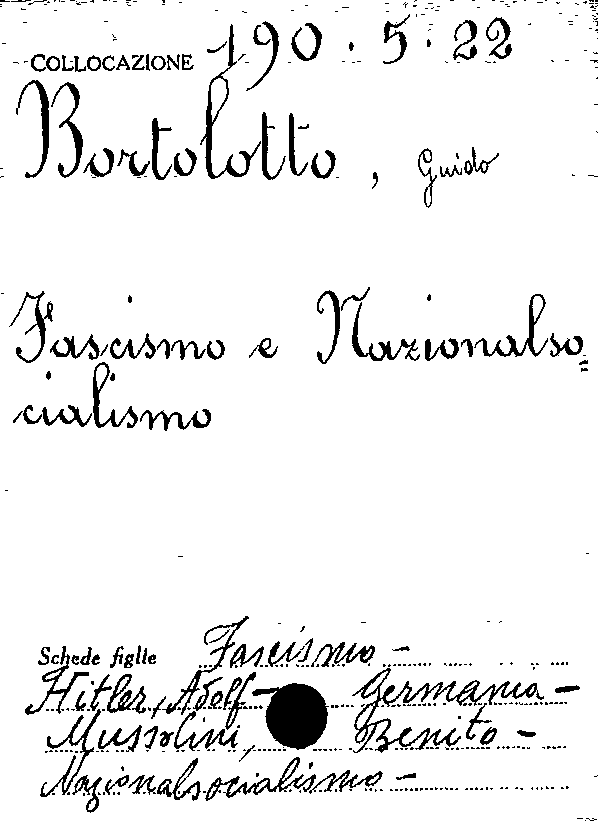 COLLOCAZIONE 190.5.22
Bortolotto, Guido
Fascismo e Nazionalso=
cialismo
Schede figlie Fascismo -
Hitler, Adolf - Germania -
Mussolini, Benito -
Nazionalsocialismo -